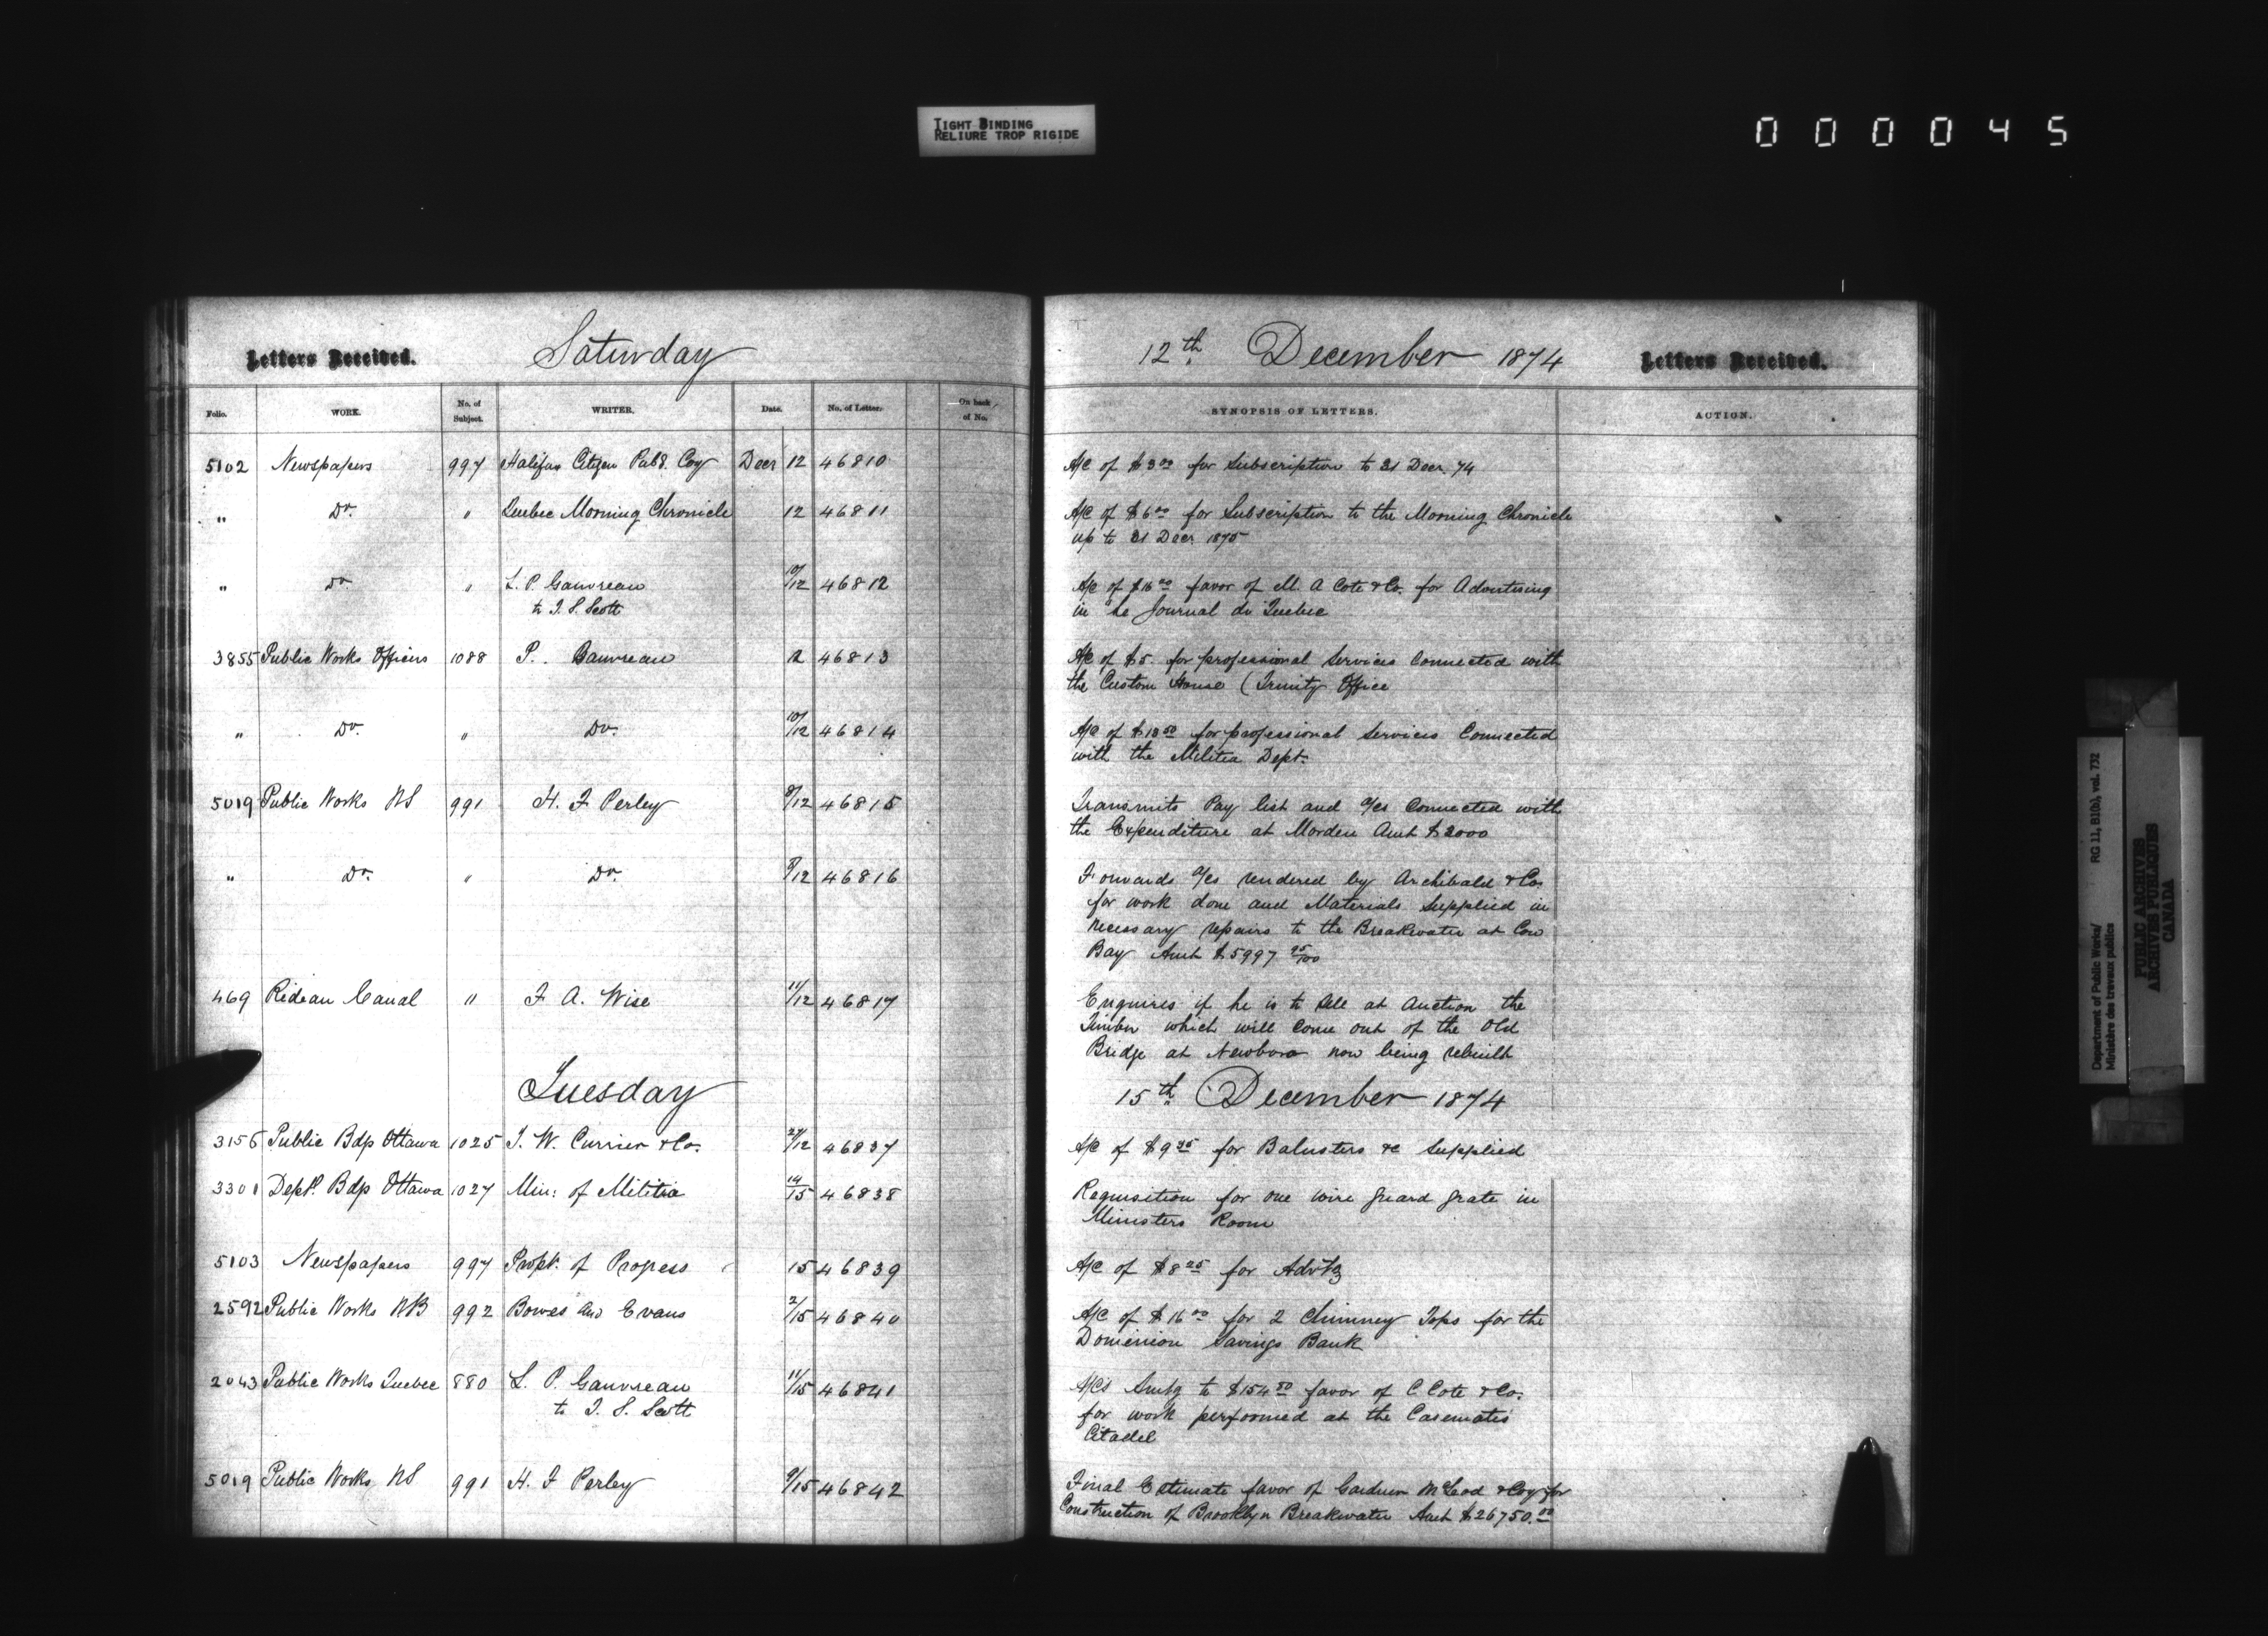 TIGHT BINDING
RELIURE TROP RIGIDE
000045
Letters Received. Saturday 12th December 1874 Letters Received.
Folio. WORK. No. of Subject. WRITER. Date. No. of Letter. On back of No. SYNOPSIS OF LETTERS. ACTION.
5102 Newspapers 997 Halifax Citizen Pub. Coy Decr 12 46810 A/C of $3.00 for Subscription to 31 Decr. 74
" Do. " Quebec Morning Chronicle 12 46811 A/C of $6.00 for Subscription to the Morning Chronicle
up to 31 Decr. 1875
" Do " L. P. Gauvreau 10/12 46812 A/C of $16.00 favor of M. A Cote & Co. for Advertising
to T. S. Scott in Le Journal de Quebec
3855 Public Works Officers 1088 P. Gauvreau 12 46813 A/C of $5. for professional Services Connected with
the Custom House (Trinity Office
" Do. " Do. 10/12 46814 A/C of $18.50 for professional Services Connected
with the Militia Dept.
5019 Public Works NS 991 H. F Perley 8/12 46815 Transmits Pay list and a/cs Connected with
the Expenditure at Morden Amt $2000
" Do. " Do. 9/12 46816 Forwards a/cs rendered by Archibald & Co.
for work done and Materials Supplied in
necessary repairs to the Breakwater at Cow
Bay Amt $5997 25/100
469 Rideau Canal " F. A. Wise 11/12 46817 Enquires if he is to sell at Auction the
Timber which will Come out of the Old
Bridge at Newboro now being rebuilt
Tuesday 15th December 1874
3156 Public Bdp Ottawa 1025 J. W. Currier & Co. 27/12 46837 A/C of $9 for Balusters &c Supplied
3301 Deptl. Bdp Ottawa 1027 Min: of Militia 14/15 46838 Requisition for one wire guard grate in
Ministers Room
5103 Newspapers 997 Propt. of Progress 15 46839 A/C of $8.25 for Advtg
2592 Public Works NB 992 Bowes and Evans 2/15 46840 A/C of $16.00 for 2 Chimney Tops for the
Dominion Savings Bank
2043 Public Works Quebec 880 L. P. Gauvreau 11/15 46841 A/Cs Amtg to $154.50 favor of C. Cote & Co.
to T. S. Scott for work performed at the Casemates
Citadel
5019 Public Works NS 991 H. F Perley 9/15 46842 Final Estimate favor of Gardner McLeod & Coy for
Construction of Brooklyn Breakwater Amt $26750.00
Department of Public Works/
Ministère des travaux publics
RG 11, B1(b), vol. 732
PUBLIC ARCHIVES
ARCHIVES PUBLIQUES
CANADA